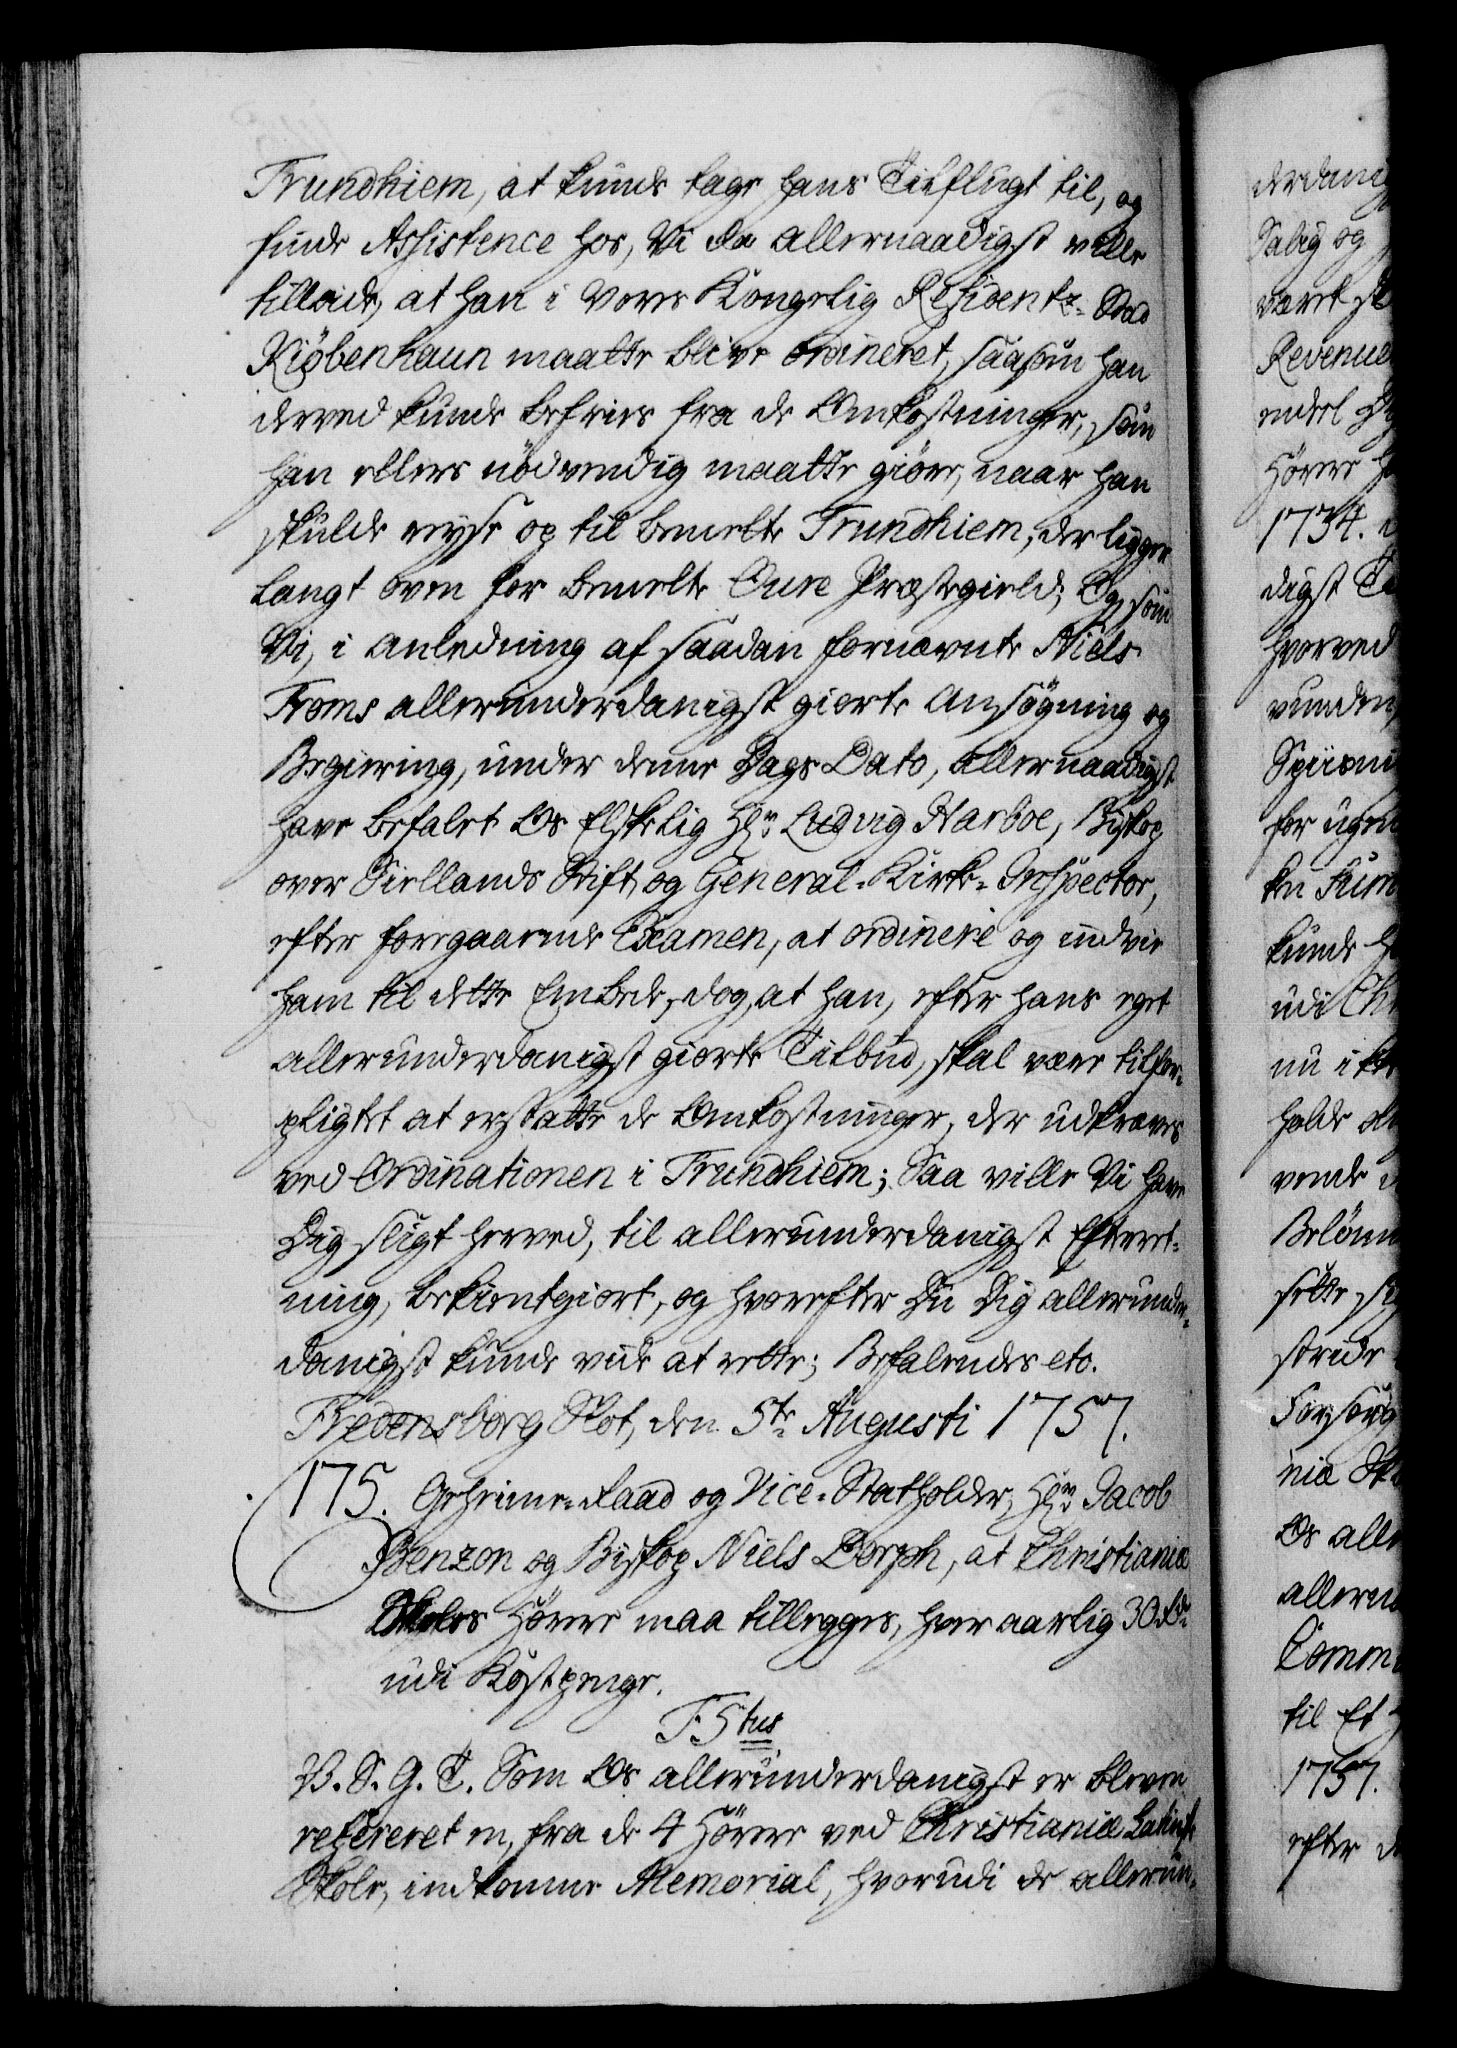 Trundhiem, at kunde tage hans Tilflugt til, og
finde Assistence hos, Vi da allernaadigst ville
tillade, at han i Vores Kongelig Residentz-Stad
Kiøbenhaun maatte blive ordineret, saasom han
derved kunde befries fra de Omkostninger, som
han ellers nödvendig maatte giøre, naar han
skulde reyse op til bemelte Trundhiem, der ligger
langt oven for bemelte Oure Præstegield; Og som
Vi, i Anledning af saadan fornævnte Niels
Froms allerunderdanigst giorte Ansøgning og
Begiering, under denne Dags Dato, allernaadigst
have befalet Os Elskelig Hr. Ludvig Harboe, Biskop
over Siellands Stift og General-Kirke-Inspector,
efter foregaaende Examen, at ordinere og indvie
ham til dette Embede, dog, at han, efter hans eget
allerunderdanigst giorte Tilbud, skal være tilfor-
pligtet at erstatte de Omkostninger, der udkræves
ved Ordinationen i Trundhiem; Saa ville Vi have
Dig sligt herved, til allerunderdanigst Efterret-
ning, bekientgiort, og hvorefter Du Dig allerunder-
danigst kunde vide at rette; Befalendes etc.
Fredensborg Slot, den 5te Augusti 1757.
175. Geheime-Raad og Vice-Statholder, Hr. Jacob
Benzon og Biskop Niels Dorph, at Christianiæ
Skoles Hörere maa tillegges, hver aarlig 30 Rd.
udi Kostpenge.
F5tus
V. S. G. T. Som Os allerunderdanigst er bleven
refereret en, fra de 4 Hörere ved Christianiæ Latinske
Skole, indkomme Memorial, hvorudi de allerun-